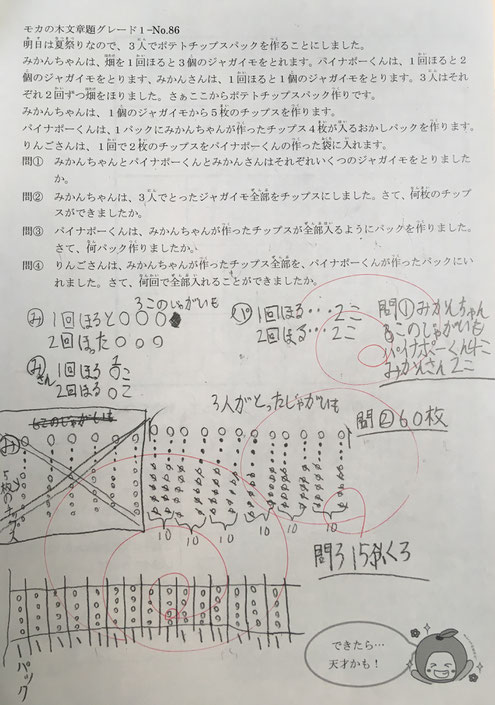 モカの木文章題グレード1-No.86
明日は夏祭りなので、3人でポテトチップスパックを作ることにしました。
みかんちゃんは、畑を1回ほると3個のジャガイモをとれます。パイナポーくんは、1回ほると2
個のジャガイモをとります、みかんさんは、1回ほると1個のジャガイモをとります。3人はそれ
ぞれ2回ずつ畑をほりました。さぁここからポテトチップスパック作りです。
みかんちゃんは、1個のジャガイモから5枚のチップスを作ります。
パイナポーくんは、1パックにみかんちゃんが作ったチップス4枚が入るおかしパックを作ります。
りんごさんは、1回で2枚のチップスをパイナポーくんの作った袋に入れます。
問① みかんちゃんとパイナポーくんとみかんさんはそれぞれいくつのジャガイモをとりました
か。
問② みかんちゃんは、3人でとったジャガイモ全部をチップスにしました。さて、何枚のチップ
スができましたか。
問③ パイナポーくんは、みかんちゃんが作ったチップスが全部入るようにパックを作りました。
さて、何パック作りましたか。
問④ りんごさんは、みかんちゃんが作ったチップス全部を、パイナポーくんが作ったパックにい
れました。さて、何回で全部入れることができましたか。
3このじゃがいも
み 1回ほると
2回ほった
パ 1回ほる…2こ
2回ほる…2こ
問①みかんちゃん
6このじゃがいも
パイナポーくん4こ
みかんさん2こ
み さん 1回ほる こ
2回ほる こ
6このじゃがいも
み
5枚のチップス
3人がとったじゃがいも
問②60枚
10 10 10 10 10 10
問3 15ふくろ
1パック
できたら…
天才かも！